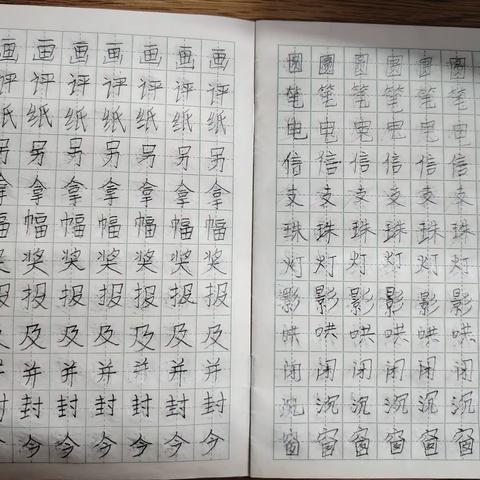 画画画画画画画
评评评评评评评
纸纸纸纸纸纸纸
另另另另另另另
拿拿拿拿拿拿拿
幅幅幅幅幅幅幅
奖奖奖奖奖奖奖
报报报报报报报
及及及及及及及
并并并并并并并
封封封封封封封
今今今今今今今
圆圆圆圆圆圆
笔笔笔笔笔笔
电电电电电电
信信信信信信
支支支支支支
珠珠珠珠珠珠
灯灯灯灯灯灯
影影影影影影
哄哄哄哄哄哄
闭闭闭闭闭闭
沉沉沉沉沉沉
窗窗窗窗窗窗